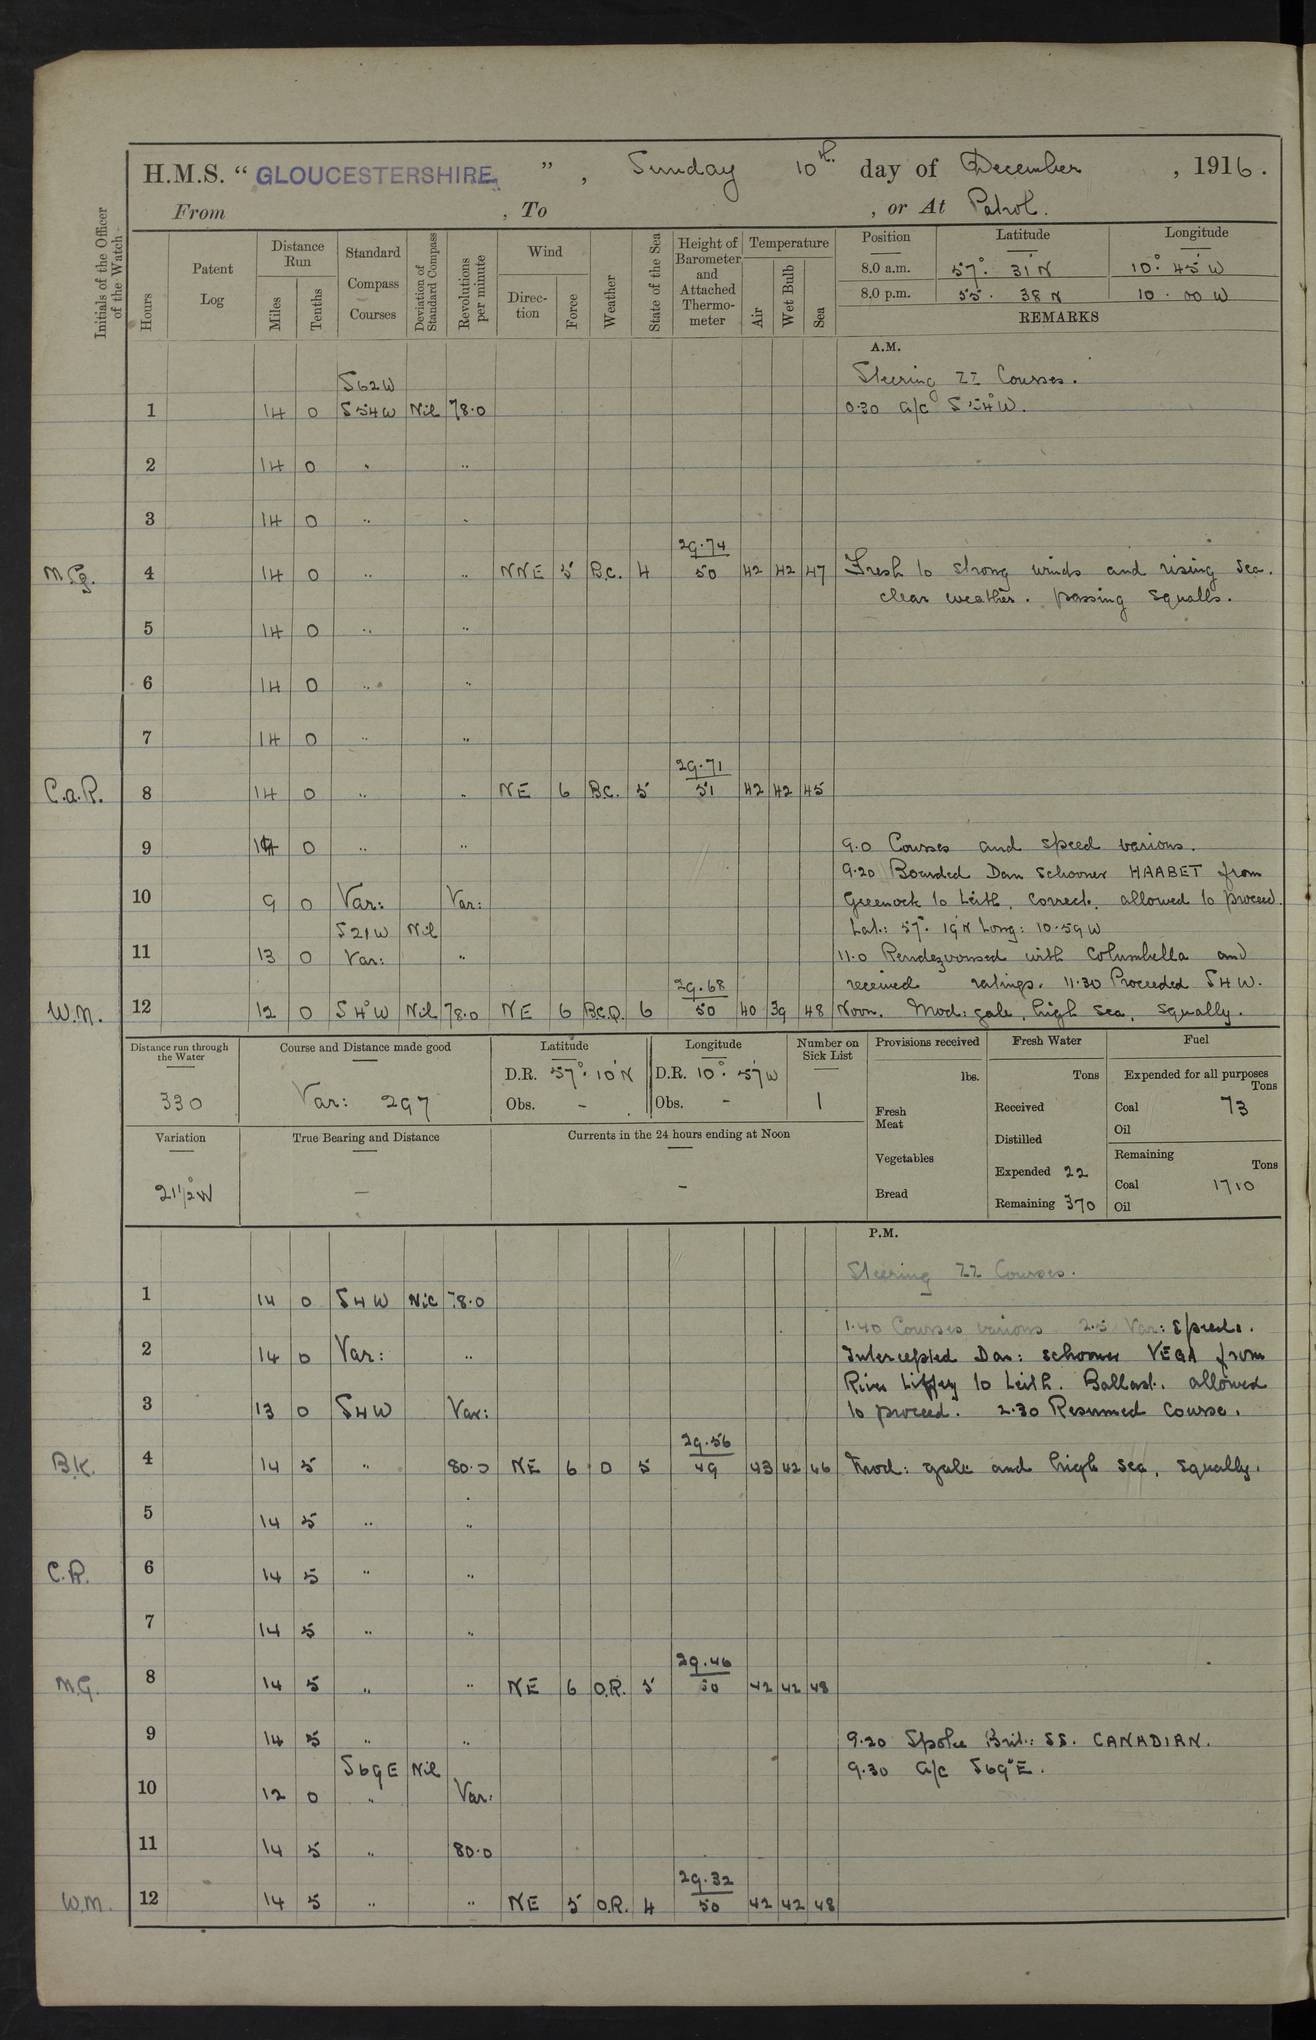 H.M.S. “ GLOUCESTERSHIRE ” , Sunday 10th day of December , 1916.
From , To , or At Patrol.
Initials of the Officer of the Watch
Hours
Patent Log
Distance Run
Miles
Tenths
Standard Compass Courses
Deviation of Standard Compass
Revolutions per minute
Wind
Direction
Force
Weather
State of the Sea
Height of Barometer and Attached Thermometer
Temperature
Air
Wet Bulb
Sea
Position Latitude Longitude
8.0 a.m. 57° 31' N 10° 45' W
8.0 p.m. 55 . 38 N 10 . 00 W
REMARKS
A.M.
S62W Steering ZZ Courses.
1 14 0 S54W Nil 78.0 0.30 a/c S 54° W.
2 14 0 " "
3 14 0 " "
29.74
M.G. 4 14 0 " " NNE 5 B.C. 4 50 42 42 47 Fresh to strong winds and rising sea.
clear weather. passing squalls.
5 14 0 " "
6 14 0 " "
7 14 0 " "
29.71
C.a.R. 8 14 0 " " NE 6 B.C. 5 51 42 42 45
9 14 0 " " 9.0 Courses and speed various.
9.20 Boarded Dan schooner HAABET from
10 9 0 Var: Var: Greenock to Leith. Correct. allowed to proceed.
S21W Nil Lat: 57° 19' N Long: 10.59 W
11 13 0 Var: " 11.0 Rendezvoused with Columbella and
29.68 received ratings. 11.30 Proceeded S4W.
W.M. 12 12 0 S4°W Nil 78.0 NE 6 B.C.Q. 6 50 40 39 48 Noon. Mod: gale, high sea, squally.
Distance run through the Water
330
Course and Distance made good
Var: 297
Latitude
D.R. 57° 10' N
Obs. -
Longitude
D.R. 10° 57' W
Obs. -
Number on Sick List
1
Provisions received
lbs.
Fresh Meat
Vegetables
Bread
Fresh Water
Tons
Received
Distilled
Expended 22
Remaining 370
Fuel
Expended for all purposes
Tons
Coal 73
Oil
Remaining
Tons
Coal 1710
Oil
Variation
21 1/2° W
True Bearing and Distance
-
Currents in the 24 hours ending at Noon
-
P.M.
Steering ZZ Courses.
1 14 0 S4W Nil 78.0
1.40 Courses various 2.5 Var: speeds.
2 14 0 Var: " Intercepted Dan: schooner VEGA from
River Liffey to Leith. Ballast. allowed
3 13 0 S4W Var: to proceed. 2.30 Resumed course.
29.56
B.K. 4 14 5 " 80.0 NE 6 O 5 49 43 42 46 Mod: gale and high sea, squally.
5 14 5 " "
C.R. 6 14 5 " "
7 14 5 " "
29.46
M.G. 8 14 5 " " NE 6 O.R. 5 50 42 42 48
9 14 5 " " 9.20 Spoke Brit: SS. CANADIAN.
S69E Nil 9.30 a/c S69°E.
10 12 0 " Var:
11 14 5 " 80.0
29.32
W.M. 12 14 5 " " NE 5 O.R. 4 50 42 42 48